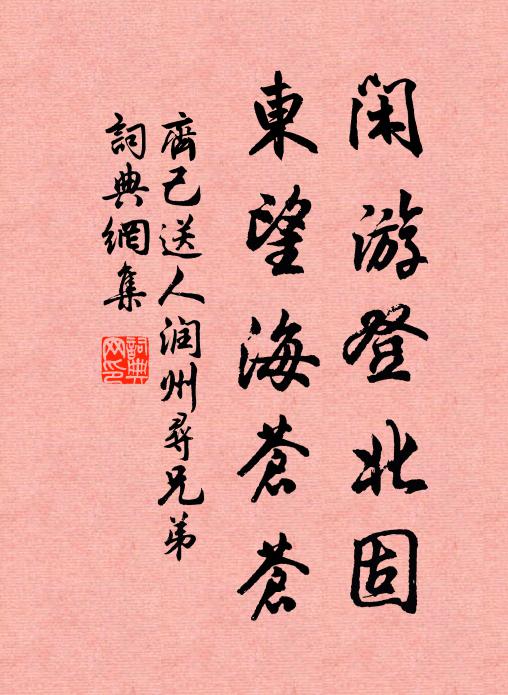 闲游登北固
東望海蒼蒼
齊己送人润州尋兄弟
詞典網集
詞典網印